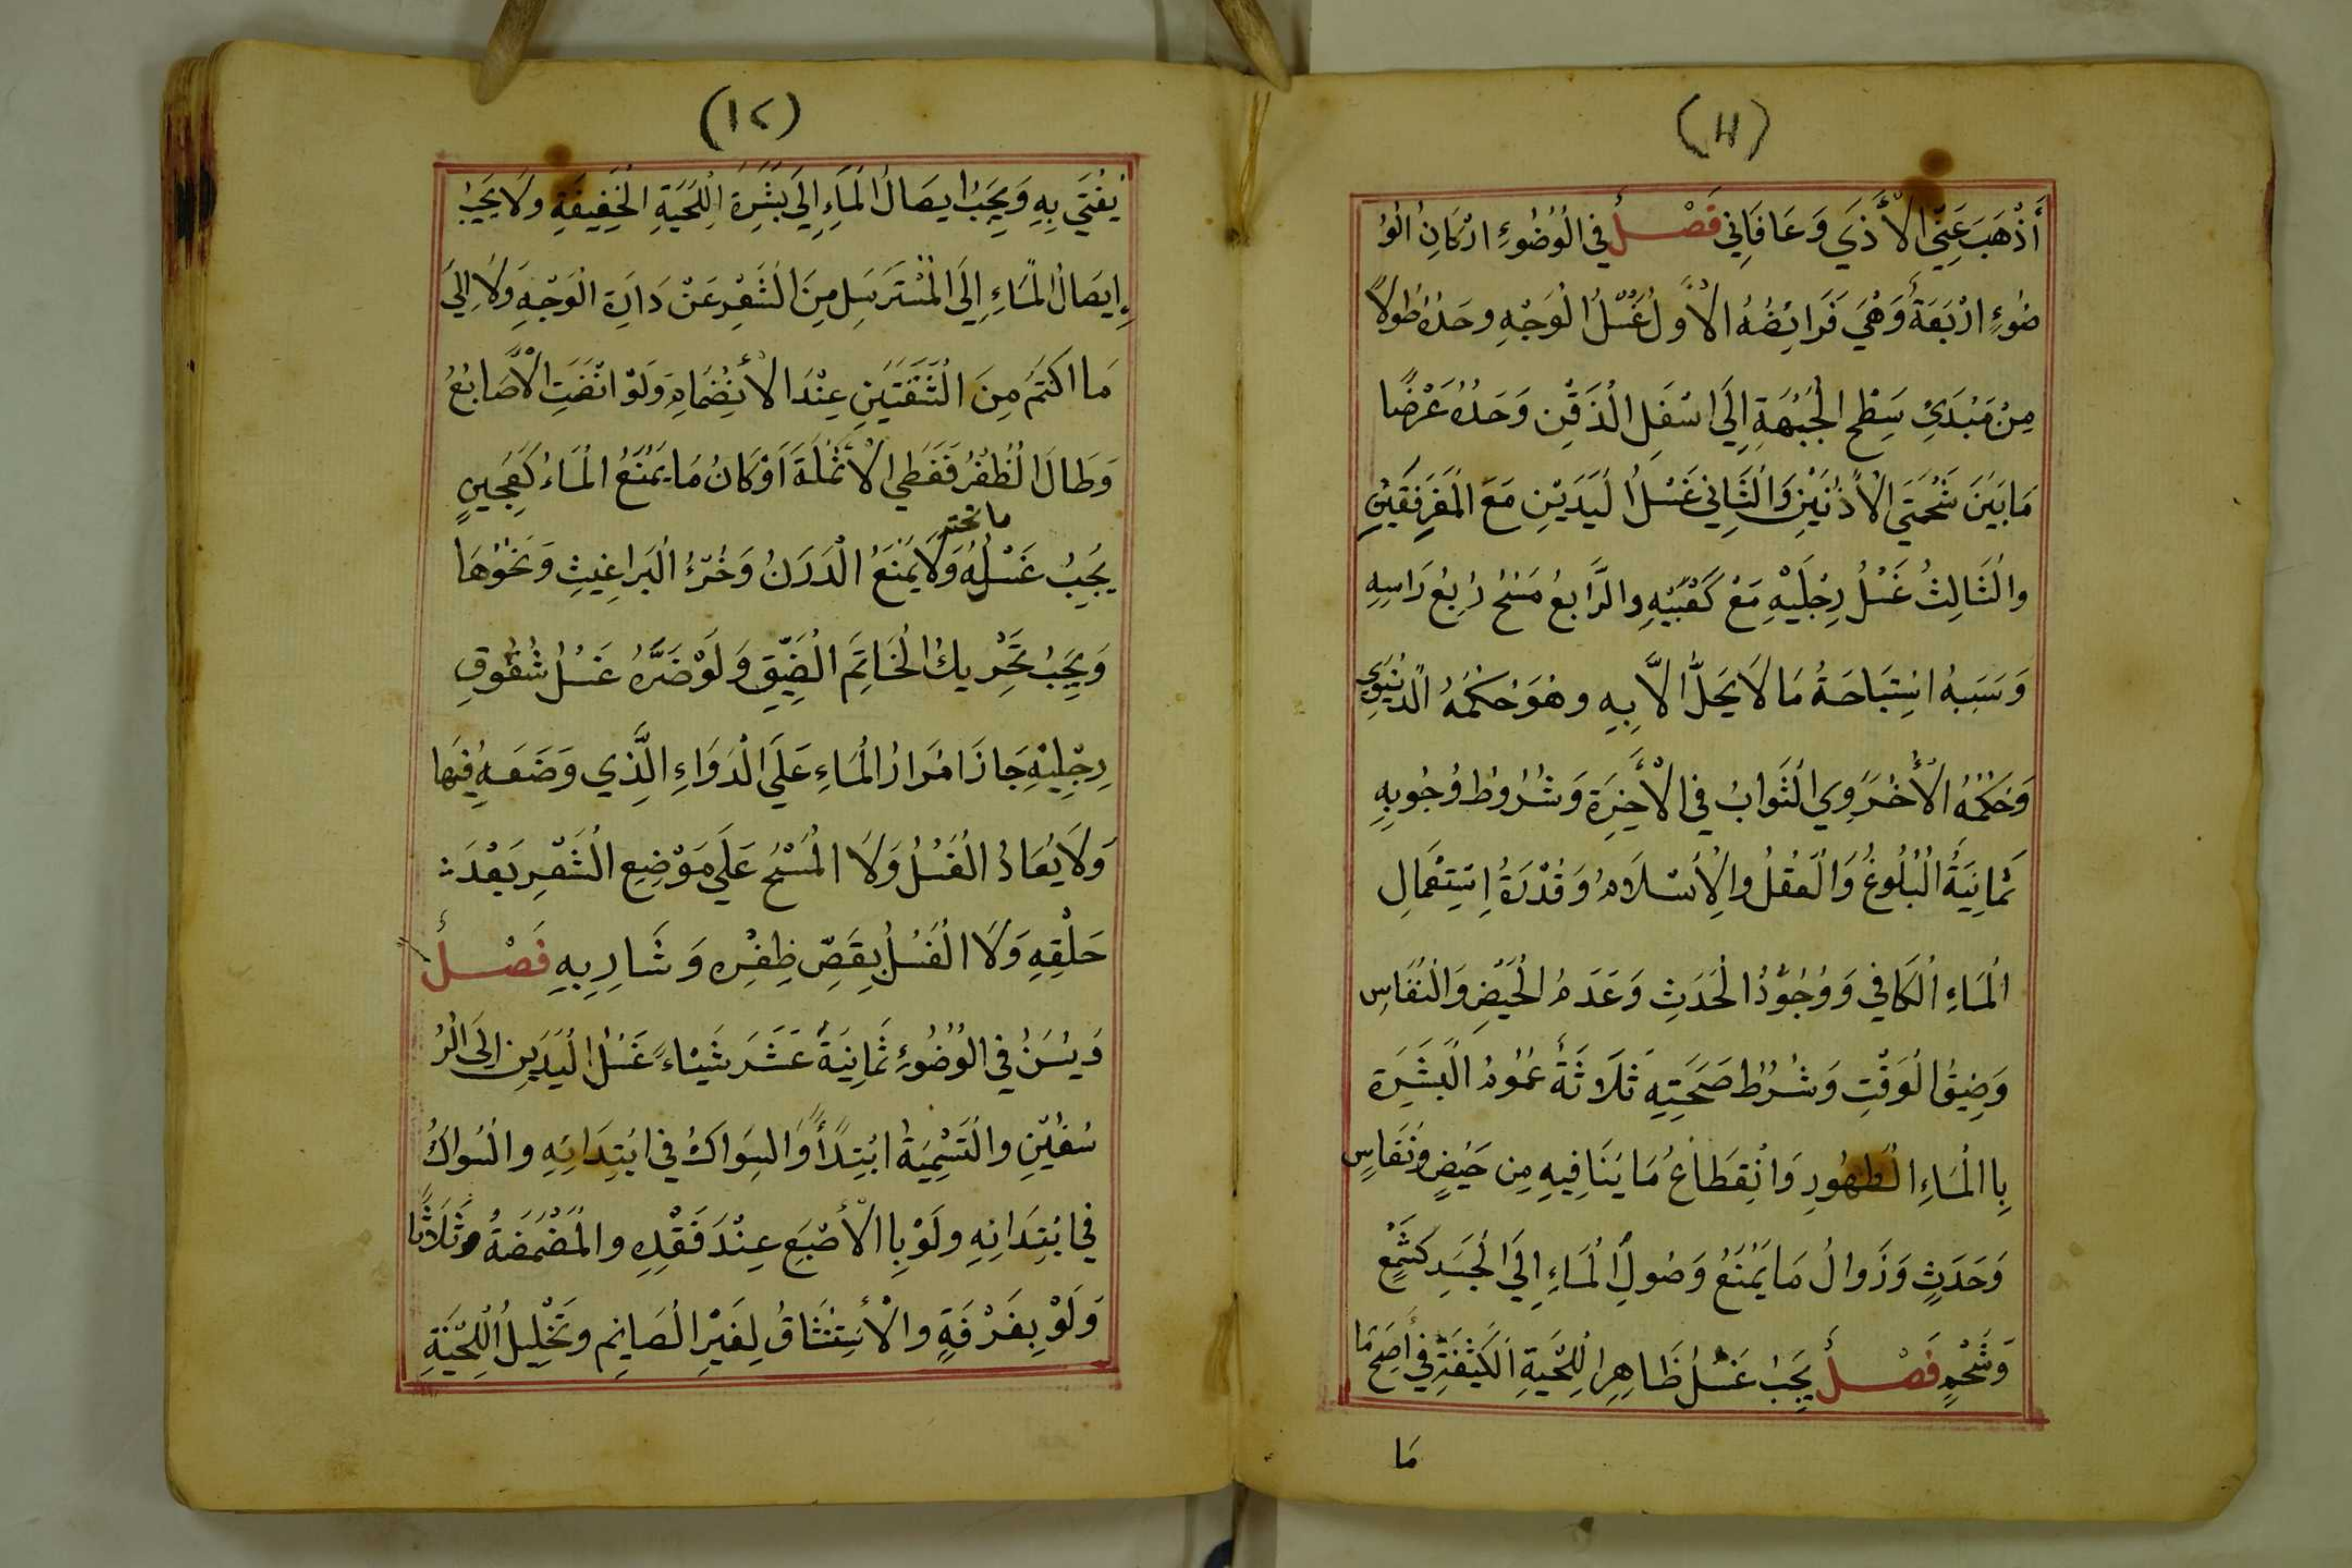 (١١)
أَذْهَبَ عَنِّي الْأَذَي وَعَافَانِي فَصْلٌ في الْوُضُوءِ ارْكَانِ الْوُ
ضُوءِ ارْبَعَةٌ وَهِيَ فَرَائِضُهُ الْأَوَّلُ غَسْلُ الْوَجْهِ وحَدُهُ طُولاً
مِنْ مَبْدَيِ سَطْحِ الْجَبْهَةِ إِلَي اسْفَلِ الْذَقَنِ وَحَدُهُ عَرْضًا
مَا بَيْنَ شَحْمَتَيِ الْأُذُنَيْنِ وَالْثَّانِي غَسْلُ الْيَدَيْنِ مَعَ الْمَرْفِقَيْنِ
والْثَالِثُ غَسْلُ رِجْلَيْهِ مَعْ كَعْبَيْهِ والرَّابِعُ مَسْحُ رُبِعُ رَاسِهِ
وَسَبَبُهُ اسْتِبَاحَةُ مَا لَا يَحِلُّ الَّا بِهِ وهُوَ حُكْمُهُ الْدُنْيَوِي
وَحُكْمُهُ الْأُخْرَوِي الْثَوَابُ في الْأَخِرَةِ وَشُرُوطُ وُجُوبِهِ
ثَمَانِيَةُ الْبُلُوغُ وَالْعَقْلُ والْإِسْلَامُ وَقُدْرَةُ إِسْتِعْمَالِ
الْمَاءِ الْكَافِي وَوُجُوْدُ الْحَدَثِ وَعَدَمُ الْحَيْضِ وَالْنِفَاسِ
وَضِيقُ الْوَقْتِ وَشُرُوْطُ صَحَّتِهِ ثَلَاثَةٌ عُمُوْمُ الْبَشَرَةِ
بِاالْمَاءِ الْطَهُورِ وَانْقِطَاعُ مَا يُنَافِيهِ مِن حَيْضٍ وَنَفَاسٍ
وَحَدَثٍ وَزَوَالُ مَا يَمْنَعُ وَصُولِ الْمَاءِ إِلَي الْجَسَدِ كَشَمْعٍ
وَشَحْمٍ فَصْلٌ يَجِبُ غَسْلُ ظَاهِرِ الْلِحْيَةِ الْكَثِفَةِ فِي أَصِحِ مَا
مَا
(١٢)
يُفْتَي بِهِ وَيَجِبُ ايصَالُ الْمَاءِ إِلَى بَشَرَةِ اللِّحْيَةِ الْخَفِيفَةِ ولَا يَجِبُ
إِيصَالُ الْمَاءِ إِلَي الْمُسْتَرسَلِ مِنَ الْشَعْرِ عَنْ دَايرَةِ الْوَجْهِ وَلَا إِلَيَ
مَا اكْتَمَ مِنَ الْشَفَتَيْنِ عِنْدَ الْأَنْضِمَامِ وَلَوْ انْضَمَتِ الْأَصَابِعُ
وَطَالَ الْظُفْرُ فَغَطَي الْأَنْمُلَةَ اَوْ كَانَ مَا يَمْنَعُ الْمَاءُ كَعَجِينٍ
ما تحته
يَجِبُ غَسْلُهُ وَلَا يَمْنَعُ الْدَرَنُ وَخُرْءُ الْبَرَاغِيثِ وَنَحْوُهَا
وَيَجِبُ تَحْرِيكُ الْخَاتَمِ الْضَيِّقِ وَلَوْ ضَرَّهُ غَسْلُ شُقُوقِ
رِجْلِيْهِ جَازَ امْرَارُ الْمَاءِ عَلَي الْدَوَاءِ الَّذِي وَضَعَهِ فِيهَا
وَلَا يُعَادُ الْغَسْلُ وَلَا الْمَسْحُ عَلَي مَوْضِعِ الْشَعْرِ بَعْدَ
حَلْقِهِ وَلَا الْغَسْلُ بِقَصِّ ظِفْرِهِ وَشَارِبِهِ فَصْلٌ
وَيُسَنُ فِي الْوُضُوءِ ثَمَانِيَةَ عَشَرَ شَيْاءً غَسْلُ الْيَدَيْنِ إِلَى الْرُ
سْغَيْنِ والْتَسْمِيَةُ ابْتِدَأً وَالسِوَاكُ فِي ابْتِدَائِهِ والْسُواكُ
فِي ابْتِدَائِهِ ولَوْ بِاالْأَصْبَعِ عِنْدَ فَقْدِهِ والْمَضْمَضَةُ وثَلَاثًا
وَلَوْ بِغَرْفَةٍ والْأَسْتِنْشَاقُ لِغَيْرِ الْصَائِمِ وتَخْلِيلُ اللِّحْيَةِ